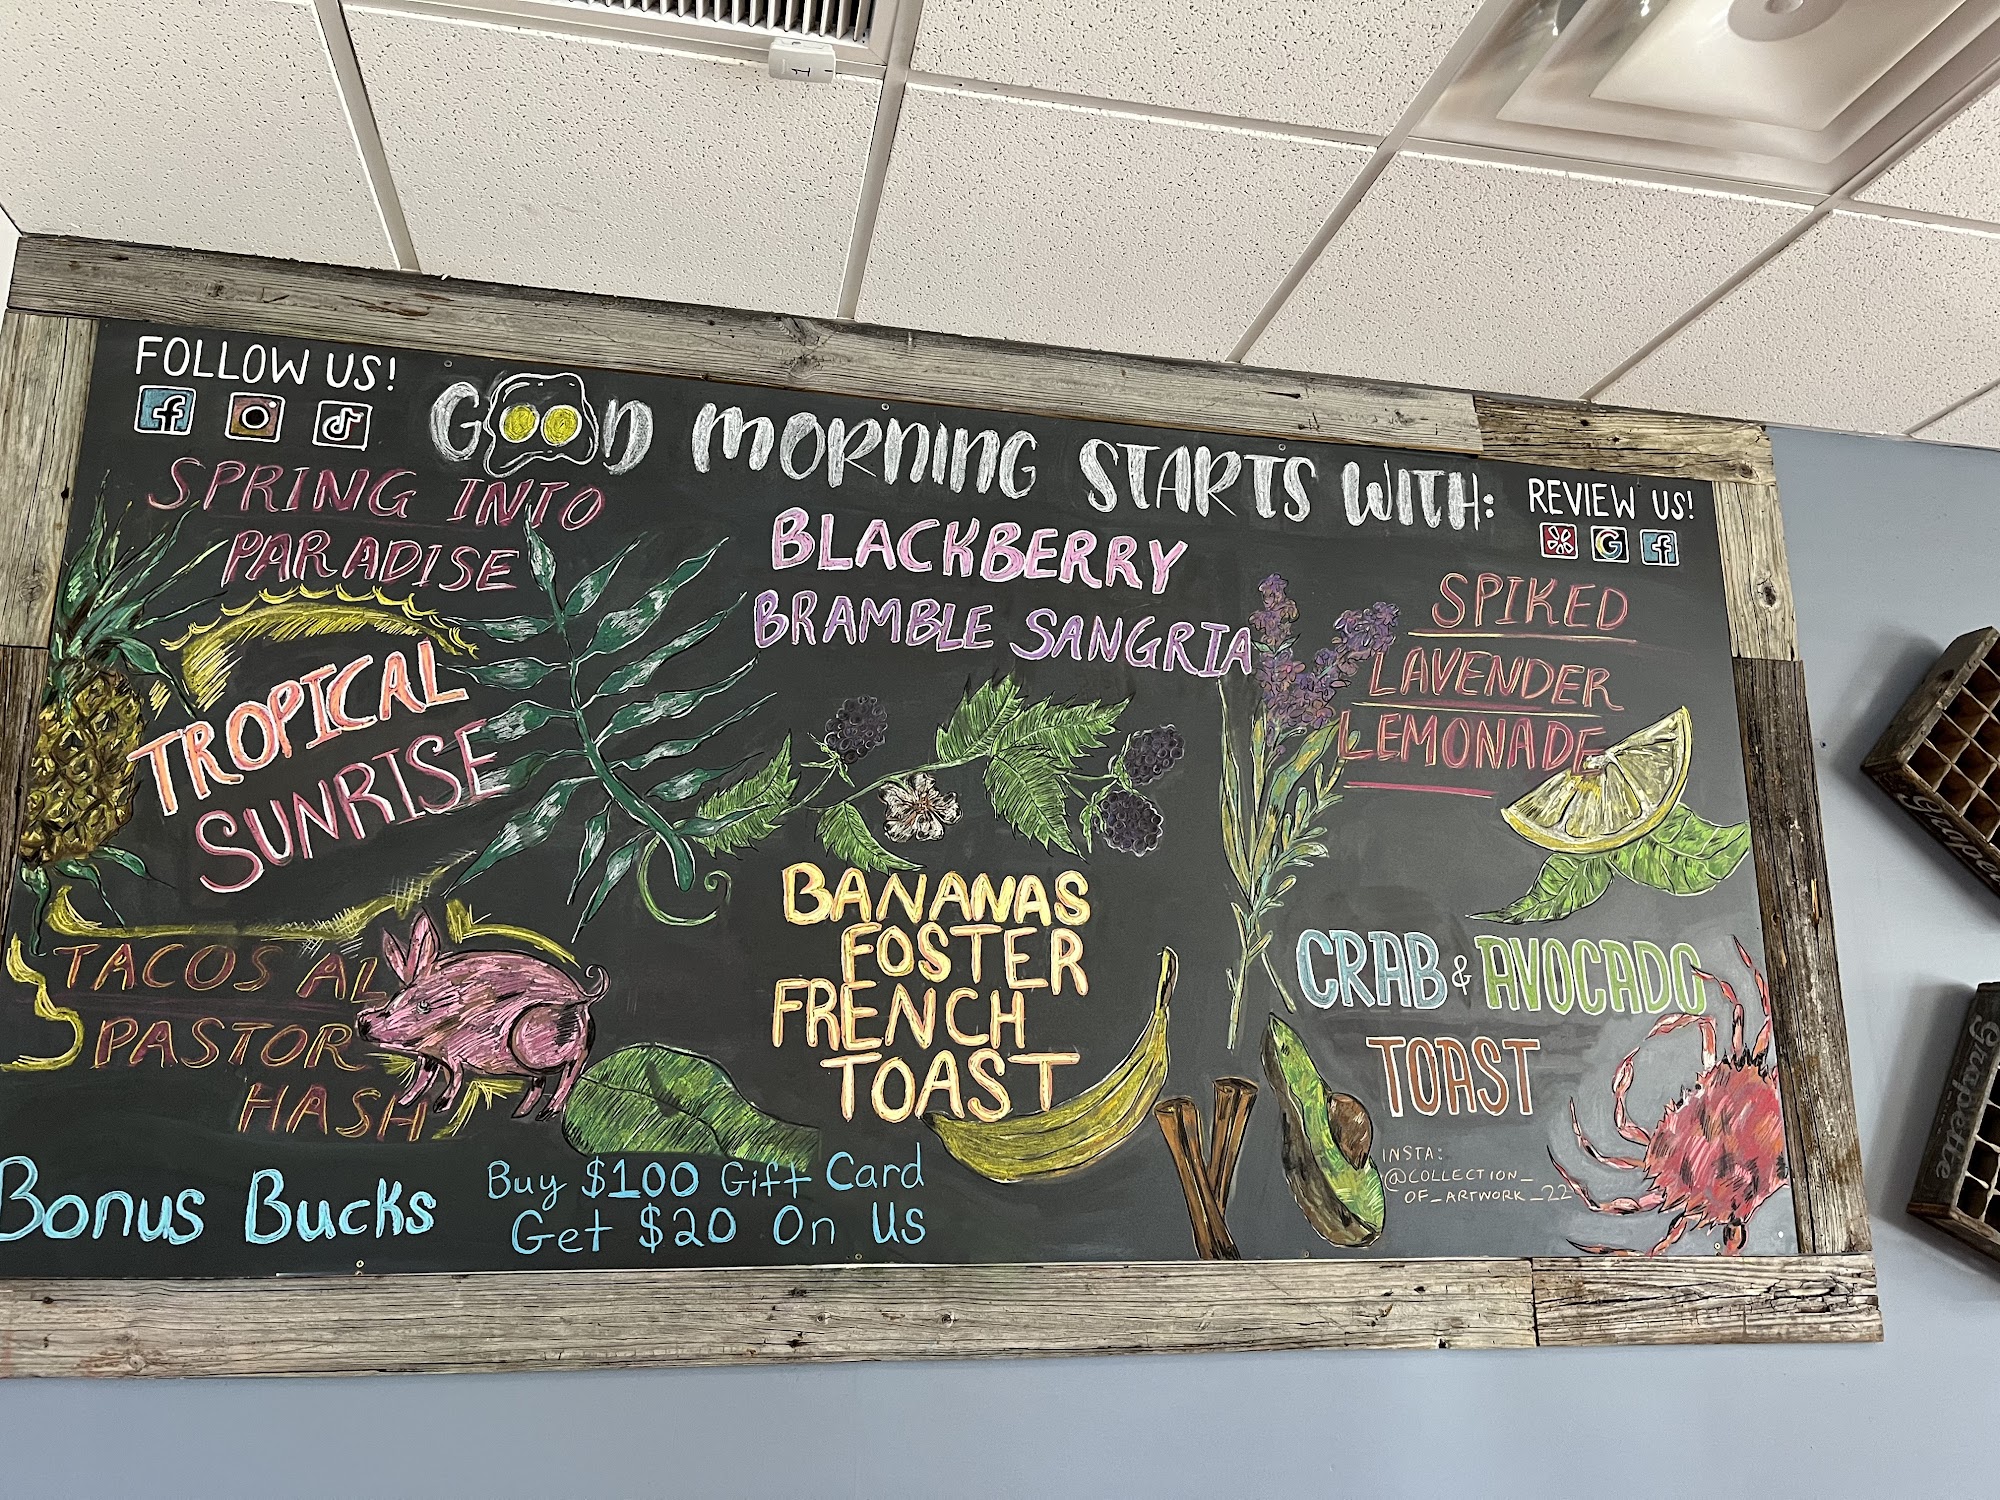 FOLLOW US!
GOOD MORNING STARTS WITH:
REVIEW US!
SPRING INTO
PARADISE
TROPICAL
SUNRISE
TACOS AL
PASTOR
HASH
BLACKBERRY
BRAMBLE SANGRIA
BANANAS
FOSTER
FRENCH
TOAST
SPIKED
LAVENDER
LEMONADE
CRAB & AVOCADO
TOAST
INSTA:
@COLLECTION_
OF_ARTWORK_22
Bonus Bucks
Buy $100 Gift Card
Get $20 On Us
Grapette
Grapette
1